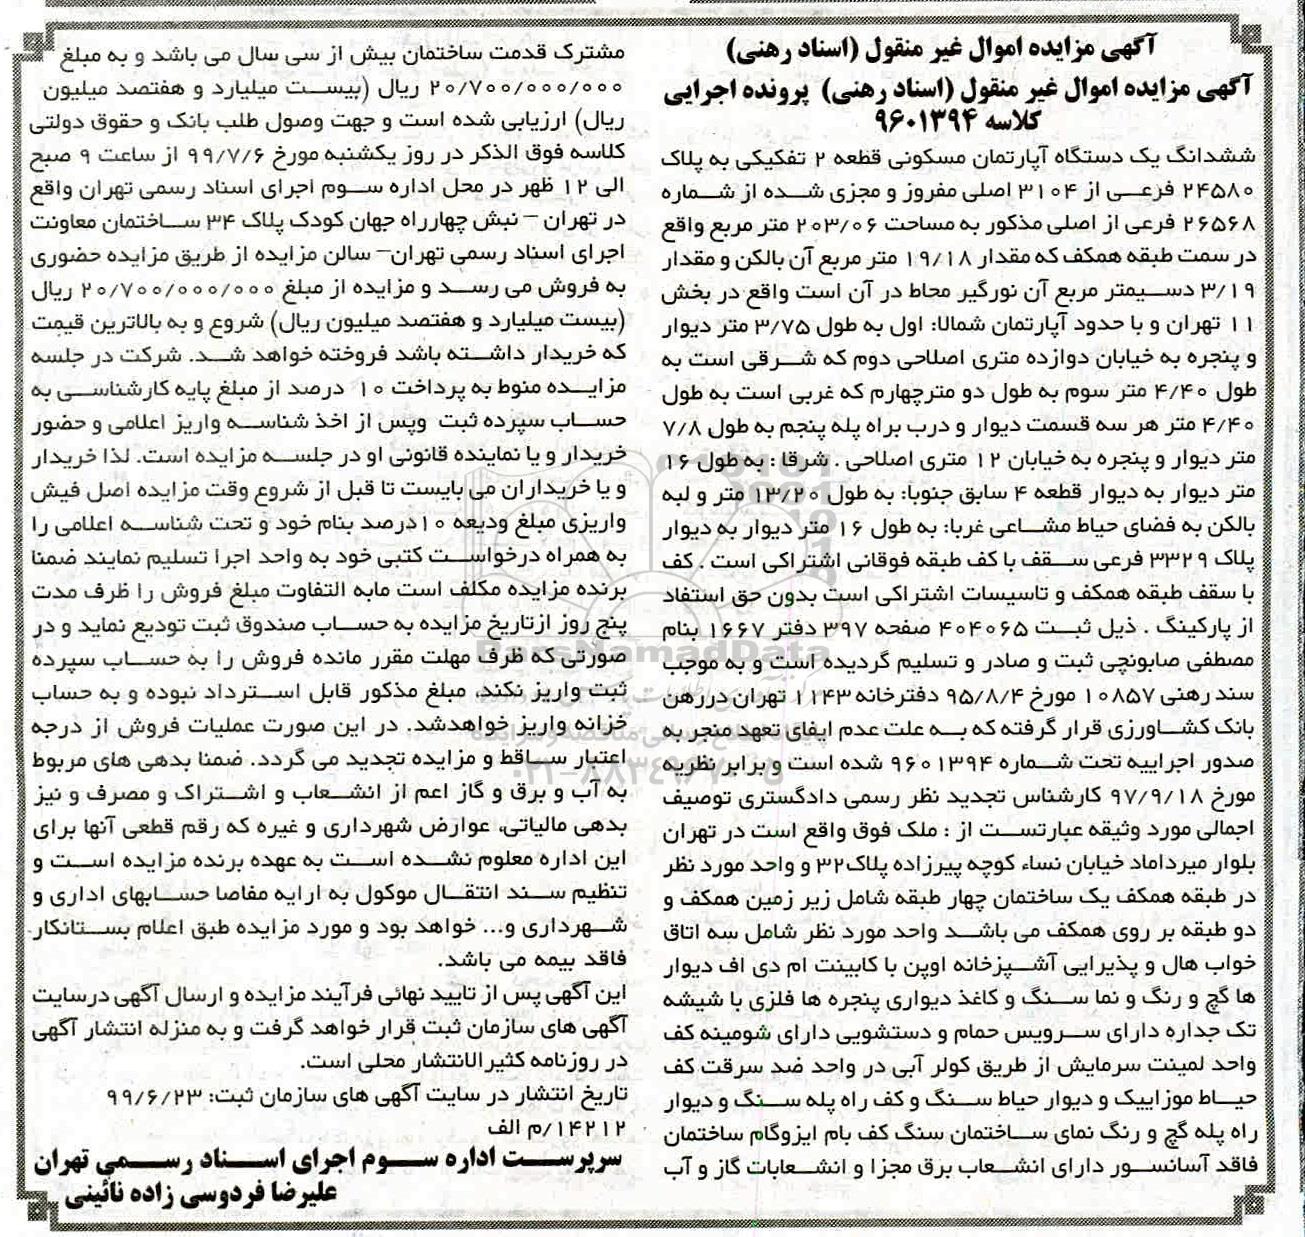 آگهی مزایده اموال غیر منقول (اسناد رهنی)
آگهی مزایده اموال غیر منقول (اسناد رهنی) پرونده اجرایی
کلاسه ۹۶۰۱۳۹۴
ششدانگ یک دستگاه آپارتمان مسکونی قطعه ۲ تفکیکی به پلاک
۲۴۵۸۰ فرعی از ۳۱۰۴ اصلی مفروز و مجزی شده از شماره
۲۶۵۶۸ فرعی از اصلی مذکور به مساحت ۲۰۳/۰۶ متر مربع واقع
در سمت طبقه همکف که مقدار ۱۹/۱۸ متر مربع آن بالکن و مقدار
۳/۱۹ دسیمتر مربع آن نورگیر محاط در آن است واقع در بخش
۱۱ تهران و با حدود آپارتمان شمالا: اول به طول ۳/۷۵ متر دیوار
و پنجره به خیابان دوازده متری اصلاحی دوم که شرقی است به
طول ۴/۴۰ متر سوم به طول دو مترچهارم که غربی است به طول
۴/۴۰ متر هر سه قسمت دیوار و درب براه پله پنجم به طول ۷/۸
متر دیوار و پنجره به خیابان ۱۲ متری اصلاحی . شرقا : به طول ۱۶
متر دیوار به دیوار قطعه ۴ سابق جنوبا: به طول ۱۳/۲۰ متر و لبه
بالکن به فضای حیاط مشاعی غربا: به طول ۱۶ متر دیوار به دیوار
پلاک ۳۳۲۹ فرعی سقف با کف طبقه فوقانی اشتراکی است . کف
با سقف طبقه همکف و تاسیسات اشتراکی است بدون حق استفاد
از پارکینگ . ذیل ثبت ۴۰۴۰۶۵ صفحه ۳۹۷ دفتر ۱۶۶۷ بنام
مصطفی صابونچی ثبت و صادر و تسلیم گردیده است و به موجب
سند رهنی ۱۰۸۵۷ مورخ ۹۵/۸/۴ دفترخانه ۱۱۴۳ تهران دررهن
بانک کشاورزی قرار گرفته که به علت عدم ایفای تعهد منجر به
صدور اجراییه تحت شماره ۹۶۰۱۳۹۴ شده است و برابر نظریه
مورخ ۹۷/۹/۱۸ کارشناس تجدید نظر رسمی دادگستری توصیف
اجمالی مورد وثیقه عبارتست از : ملک فوق واقع است در تهران
بلوار میرداماد خیابان نساء کوچه پیرزاده پلاک۳۲ و واحد مورد نظر
در طبقه همکف یک ساختمان چهار طبقه شامل زیر زمین همکف و
دو طبقه بر روی همکف می باشد واحد مورد نظر شامل سه اتاق
خواب هال و پذیرایی آشپزخانه اوپن با کابینت ام دی اف دیوار
ها گچ و رنگ و نما سنگ و کاغذ دیواری پنجره ها فلزی با شیشه
تک جداره دارای سرویس حمام و دستشویی دارای شومینه کف
واحد لمینت سرمایش از طریق کولر آبی در واحد ضد سرقت کف
حیاط موزاییک و دیوار حیاط سنگ و کف راه پله سنگ و دیوار
راه پله گچ و رنگ نمای ساختمان سنگ کف بام ایزوگام ساختمان
فاقد آسانسور دارای انشعاب برق مجزا و انشعابات گاز و آب
مشترک قدمت ساختمان بیش از سی سال می باشد و به مبلغ
۲۰/۷۰۰/۰۰۰/۰۰۰ ریال (بیست میلیارد و هفتصد میلیون
ریال) ارزیابی شده است و جهت وصول طلب بانک و حقوق دولتی
کلاسه فوق الذکر در روز یکشنبه مورخ ۹۹/۷/۶ از ساعت ۹ صبح
الی ۱۲ ظهر در محل اداره سوم اجرای اسناد رسمی تهران واقع
در تهران – نبش چهارراه جهان کودک پلاک ۳۴ ساختمان معاونت
اجرای اسناد رسمی تهران– سالن مزایده از طریق مزایده حضوری
به فروش می رسد و مزایده از مبلغ ۲۰/۷۰۰/۰۰۰/۰۰۰ ریال
(بیست میلیارد و هفتصد میلیون ریال) شروع و به بالاترین قیمت
که خریدار داشته باشد فروخته خواهد شد. شرکت در جلسه
مزایده منوط به پرداخت ۱۰ درصد از مبلغ پایه کارشناسی به
حساب سپرده ثبت وپس از اخذ شناسه واریز اعلامی و حضور
خریدار و یا نماینده قانونی او در جلسه مزایده است. لذا خریدار
و یا خریداران می بایست تا قبل از شروع وقت مزایده اصل فیش
واریزی مبلغ ودیعه ۱۰درصد بنام خود و تحت شناسه اعلامی را
به همراه درخواست کتبی خود به واحد اجرا تسلیم نمایند ضمنا
برنده مزایده مکلف است مابه التفاوت مبلغ فروش را ظرف مدت
پنج روز ازتاریخ مزایده به حساب صندوق ثبت تودیع نماید و در
صورتی که ظرف مهلت مقرر مانده فروش را به حساب سپرده
ثبت واریز نکند، مبلغ مذکور قابل استرداد نبوده و به حساب
خزانه واریز خواهدشد. در این صورت عملیات فروش از درجه
اعتبار ساقط و مزایده تجدید می گردد. ضمنا بدهی های مربوط
به آب و برق و گاز اعم از انشعاب و اشتراک و مصرف و نیز
بدهی مالیاتی، عوارض شهرداری و غیره که رقم قطعی آنها برای
این اداره معلوم نشده است به عهده برنده مزایده است و
تنظیم سند انتقال موکول به ارایه مفاصا حسابهای اداری و
شهرداری و... خواهد بود و مورد مزایده طبق اعلام بستانکار
فاقد بیمه می باشد.
این آگهی پس از تایید نهائی فرآیند مزایده و ارسال آگهی درسایت
آگهی های سازمان ثبت قرار خواهد گرفت و به منزله انتشار آگهی
در روزنامه کثیرالانتشار محلی است.
تاریخ انتشار در سایت آگهی های سازمان ثبت: ۹۹/۶/۲۳
۱۴۲۱۲/م الف
سرپرست اداره سوم اجرای اسناد رسمی تهران
علیرضا فردوسی زاده نائینی
ParsNamadData